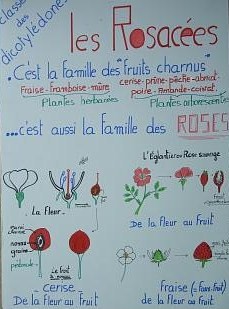 classe des
dicotylédones
les Rosacées
.C'est la famille des "fruits charnus"
fraise-framboise-mûre
cerise-prune-pêche-abricot-
poire-Amande-coing.
Plantes herbacées
Plantes arborescentes
...c'est aussi la famille des ROSES
L'Églantier ou Rose sauvage
La fleur
De la fleur au fruit
pédoncule
Le fruit
cerise
De la fleur au fruit
fraise (= faux-fruit)
de la fleur au fruit